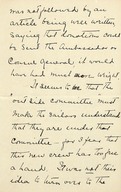 was not followed by an
article being well written
saying that donations could
be sent the Ambassador or
Consul General; it would
have had much more weight.
It seems to me that the
outside committee must
made the sailors understand
that they are under that
Committee - for I fear that
this new crew has too free
a hand. It was not their
idea to turn over to the